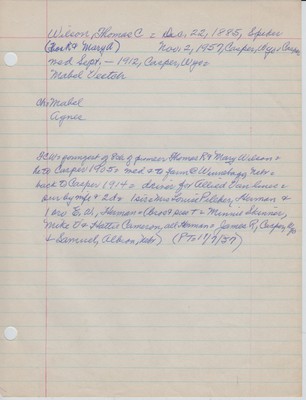 Wilson, Thomas C = Dec, 22, 1885, Spiker
(Thos R & Mary A) Nov, 2, 1957, Casper, Wyo = Casper
med Sept, - 1912, Casper, Wyo =
Mabel Veetch

ch: Mabel
Agnes

TCW = youngest of 8 ch of pioneer Thomas R & Mary Wilson =
he to Casper 1905 = med = to farm @ Winnebago, Nebr =
back to Casper 1914 = driver for Allied Van lines =
surv by wife & 2 ds 1 sis = Mrs Louise Pilcher, Herman &
1 bro E. W., Herman = (bros & sis + = Minnie Skinner,
Mike O & Hattie Cameron, all Herman = James R, Casper, Wyo
& Samuel, Albion, Nebr) (PT 01/7/57)